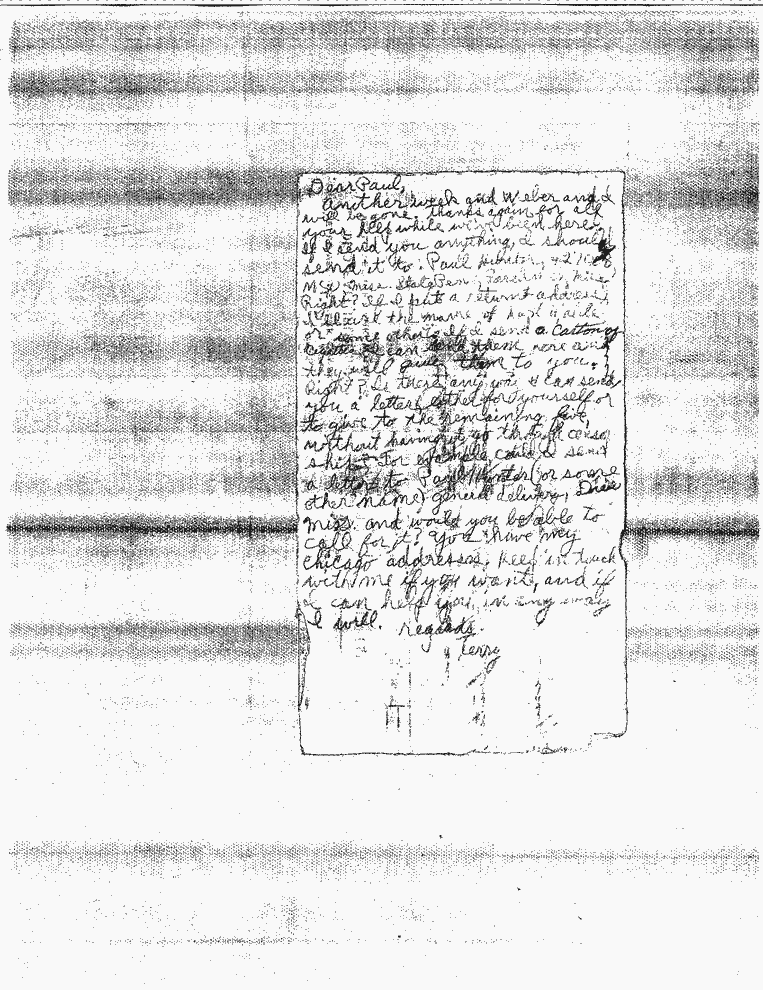 Dear Paul,
Another week and Weber and I
will be gone. Thanks again for all
your help while we've been here.
If I send you anything, I should
send it to: Paul
MSU Miss. State Pen. Parchman Miss.
Right? If I put a return address,
I'll use the name of
or some other. If I send a carton of
I can send them here and
they will give them to you.
Right? Is there any way I can send
you a letter either for yourself or
to give to the remaining five,
without having it go through censor
ship? For example could I send
a letter to Paul Hunter (or some
other name) general delivery,
Miss. and would you be able to
call for it? You have my
Chicago address. Keep in touch
with me if you want, and if
I can help you in any way
I will. regards.
Terry